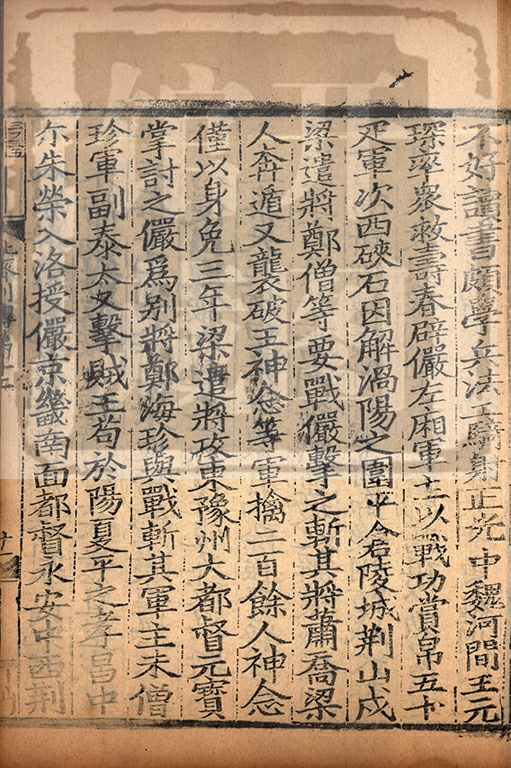 不好讀書頗學兵法工騎射正光中魏河間王元
琛率衆救壽春辟儼左廂軍主以戰功賞帛五十
疋軍次西硤石因解渦陽之圍平倉陵城荆山戍
梁遣將鄭僧等要戰儼擊之斬其將蕭喬梁
人奔遁又襲破王神念等軍擒二百餘人神念
僅以身免三年梁遣將攻東豫州大都督元寶
掌討之儼爲别將鄭海珍與戰斬其軍主朱僧
珍軍副秦太又擊賊王苟於陽夏平之孝昌中
尒朱榮入洛授儼京畿南面都督永安中西荆